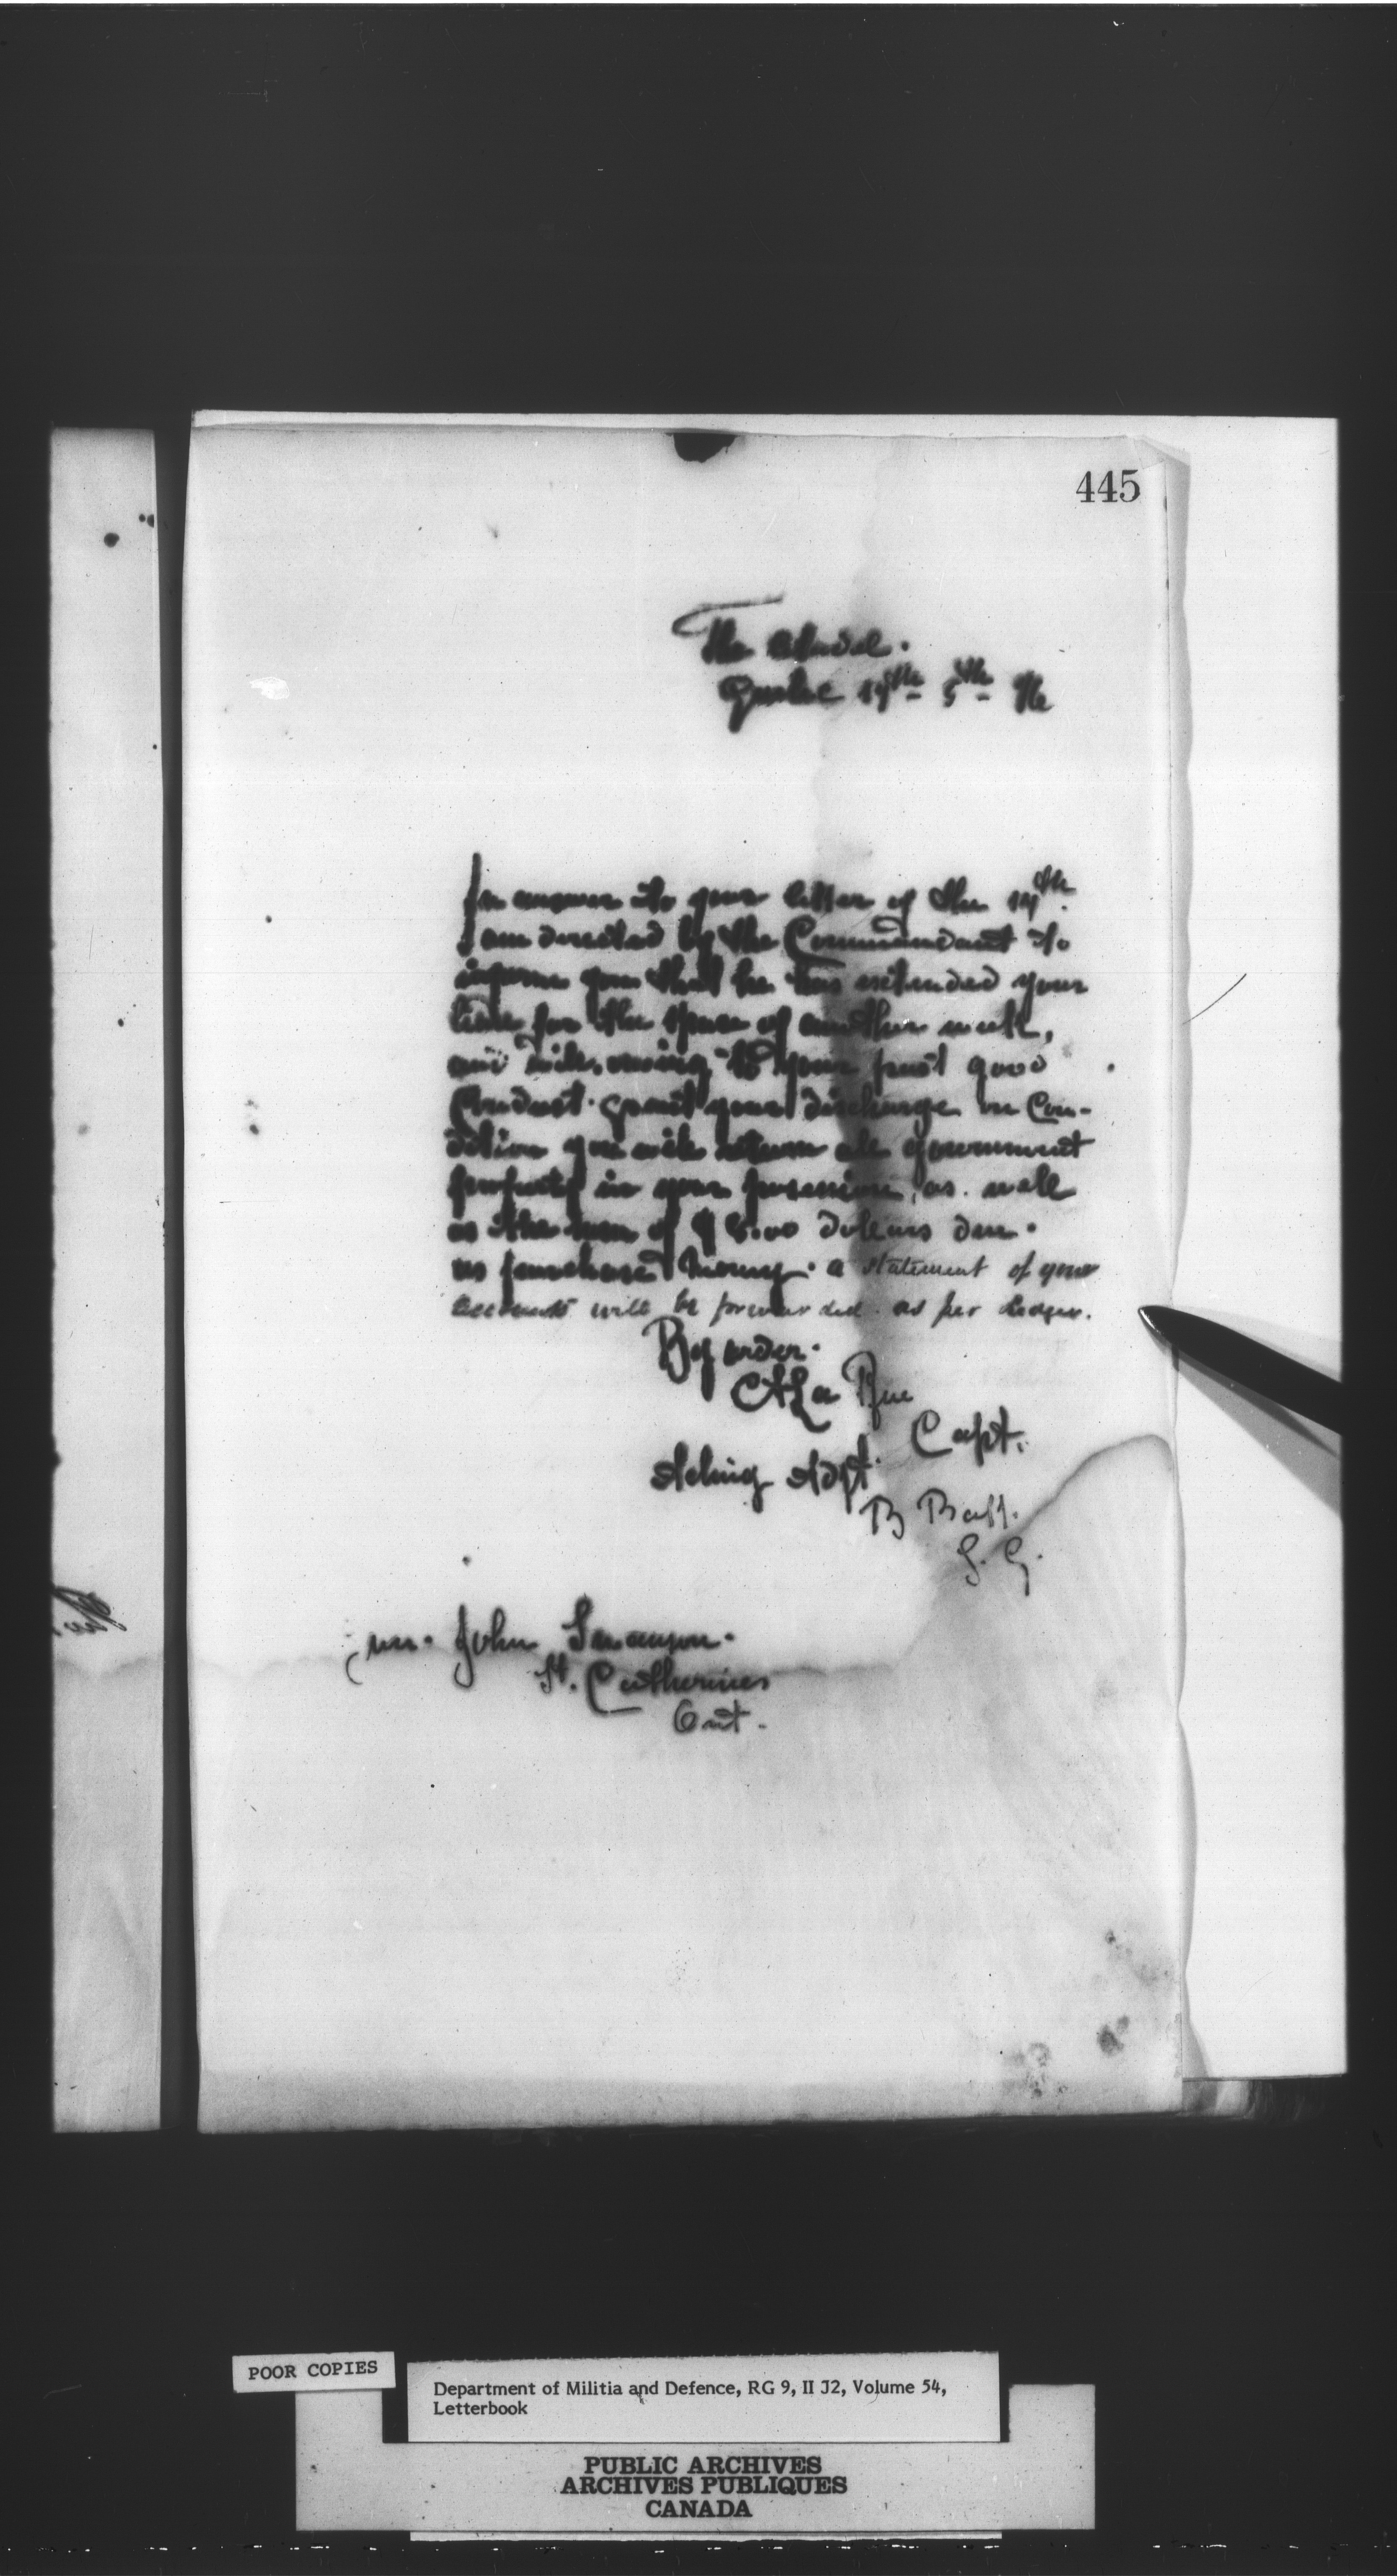 445
The Citadel.
Quebec 19th 5th
In answer to your letter of the 14th
I am directed by the Commandant to
inform you that he has extended your
time for the space of another week,
and will, owing to your past good
Conduct. grant your discharge on Con-
dition you will return all government
property in your possession, as. well
as the sum of dollars due.
as purchase money. a statement of your
accounts will be forwarded. as per Ledger.
By order.
La Rue
Capt.
Acting Adjt.
B Batt.
Mr. John Swanson.
St. Catherines
Ont.
POOR COPIES
Department of Militia and Defence, RG 9, II J2, Volume 54,
Letterbook
PUBLIC ARCHIVES
ARCHIVES PUBLIQUES
CANADA